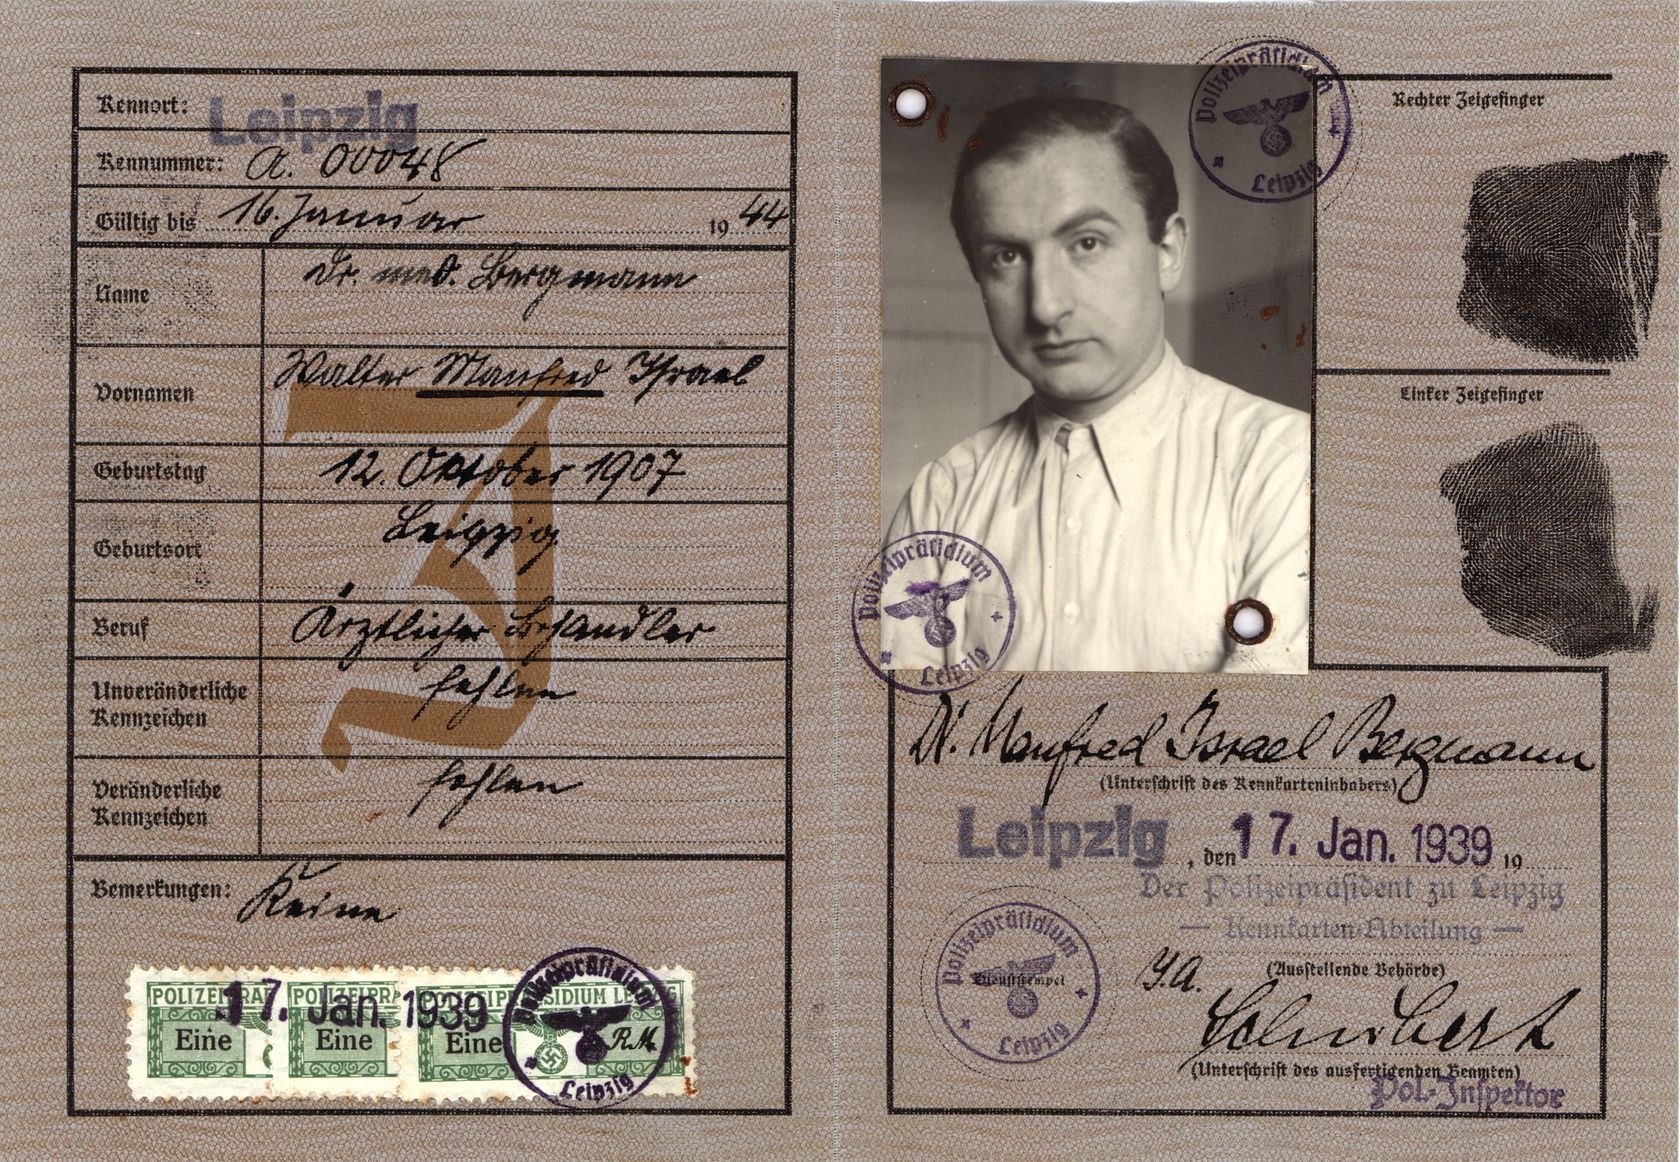 Kennort: Leipzig
Kennummer: A. 00048
Gültig bis 16. Januar 1944
Name
Dr. med. Bergmann
Vornamen
Walter Manfred Israel
Geburtstag
12. Oktober 1907
Geburtsort
Leipzig
Beruf
Ärztlicher Behandler
Unveränderliche Kennzeichen
fehlen
Veränderliche Kennzeichen
fehlen
Bemerkungen: Keine
J
POLIZEIPRÄ
POLIZEIPRÄ
SIDIUM LEIPZIG
17. Jan. 1939
Eine
Eine
Eine
RM
Polizeipräsidium
Leipzig
Polizeipräsidium
Leipzig
Polizeipräsidium
Leipzig
Rechter Zeigefinger
Linker Zeigefinger
Dr. Manfred Israel Bergmann
(Unterschrift des Kennkarteninhabers)
Leipzig, den 17. Jan. 1939 19
Der Polizeipräsident zu Leipzig
— Kennkarten-Abteilung —
(Ausstellende Behörde)
Polizeipräsidium
Dienststempel
Leipzig
J.A.
Schubert
(Unterschrift des ausfertigenden Beamten)
Pol.-Inspektor